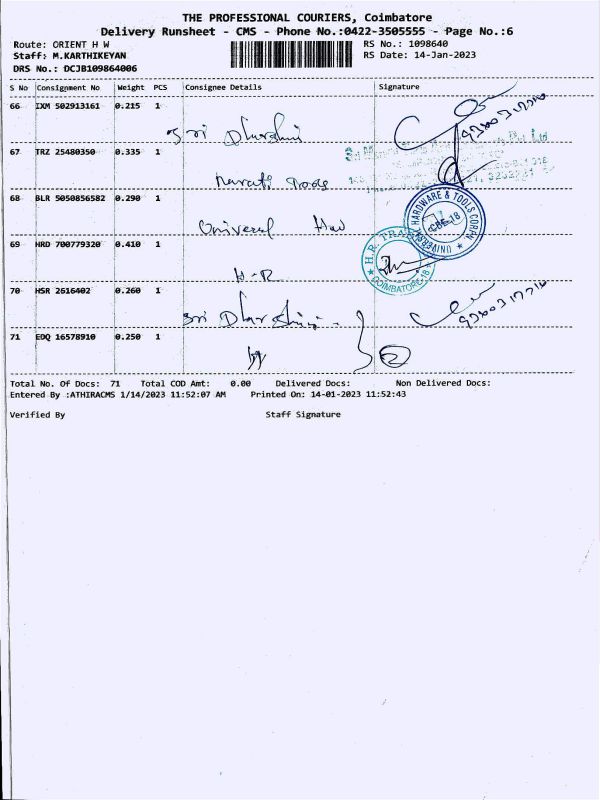 THE PROFESSIONAL COURIERS, Coimbatore
Delivery Runsheet - CMS - Phone No.:0422-3505555 - Page No.:6
Route: ORIENT H W RS No.: 1098640
Staff: M.KARTHIKEYAN RS Date: 14-Jan-2023
DRS No.: DCJB109864006
S No Consignment No Weight PCS Consignee Details Signature
66 IXM 502913161 0.215 1
Sri Dharshini
67 TRZ 25480350 0.335 1
Tools
68 BLR 5050856582 0.290 1
Universal
UNIVERSAL HARDWARE & TOOLS CORPN.
CBE-18
69 HRD 700779320 0.410 1
H-R
H.R.
COIMBATORE-18
70 HSR 2616402 0.260 1
Sri Dharshini
71 EDQ 16578910 0.250 1
Total No. Of Docs: 71 Total COD Amt: 0.00 Delivered Docs: Non Delivered Docs:
Entered By :ATHIRACMS 1/14/2023 11:52:07 AM Printed On: 14-01-2023 11:52:43
Verified By Staff Signature